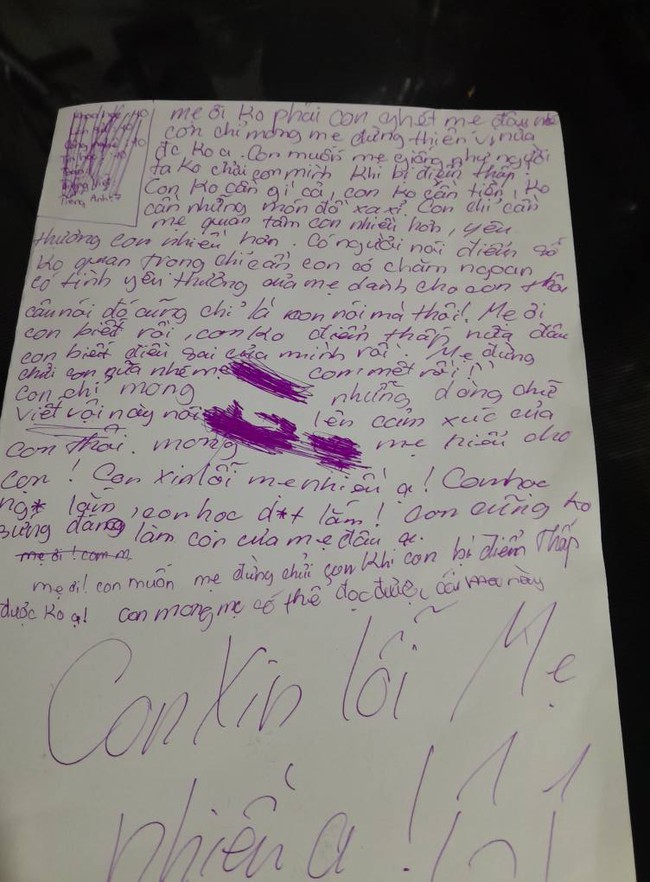 mẹ ơi ko phải con ghét mẹ đâu mà
con chỉ mong mẹ đừng thiên vị nữa
đc ko ạ. Con muốn mẹ giống như người
ta ko chửi con mình khi bị điểm thấp.
Con ko cần gì cả, con ko cần tiền, ko
cần những món đồ xa xỉ. Con chỉ cần
mẹ quan tâm con nhiều hơn, yêu
thương con nhiều hơn. Có người nói điểm số
ko quan trọng chỉ cần con có chăm ngoan
có tình yêu thương của mẹ dành cho con thôi
câu nói đó cũng chỉ là nói mà thôi! Mẹ ơi
con biết rồi, con ko điểm thấp nữa đâu
con biết điều sai của mình rồi. Mẹ đừng
chửi con nữa nhé mẹ con mệt rồi!
con chỉ mong những dòng chữ
viết vội này nói lên cảm xúc của
con thôi. mong mẹ hiểu cho
con! Con xin lỗi mẹ nhiều ạ! Con học
ng* lắm, con học d*t lắm! con cũng ko
xứng đáng làm con của mẹ đâu ạ.
mẹ ơi! con m
mẹ ơi! con muốn mẹ đừng chửi con khi con bị điểm thấp
được ko ạ! con mong mẹ có thể đọc được cái này
Con Xin lỗi Mẹ
nhiều ạ!